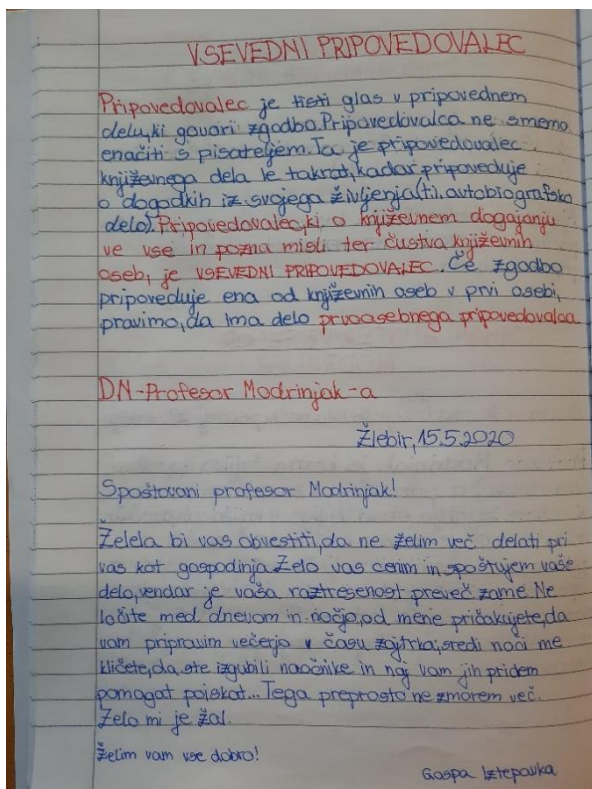 VSEVEDNI PRIPOVEDOVALEC
Pripovedovalec je tisti glas v pripovednem
delu, ki govori zgodbo. Pripovedovalca ne smemo
enačiti s pisateljem. Ta je pripovedovalec
književnega dela le takrat, kadar pripoveduje
o dogodkih iz svojega življenja (ti. avtobiografsko
delo). Pripovedovalec, ki o književnem dogajanju
ve vse in pozna misli ter čustva književnih
oseb, je VSEVEDNI PRIPOVEDOVALEC. Če zgodbo
pripoveduje ena od književnih oseb v prvi osebi,
pravimo, da ima delo prvoosebnega pripovedovalca
DN-Profesor Modrinjak-a
Žlebir, 15.5.2020
Spoštovani profesor Modrinjak!
Želela bi vas obvestiti, da ne želim več delati pri
vas kot gospodinja. Zelo vas cenim in spoštujem vaše
delo, vendar je vaša raztresenost preveč zame. Ne
ločite med dnevom in nočjo, od mene pričakujete, da
vam pripravim večerjo v času zajtrka, sredi noči me
kličete, da ste izgubili naočnike in naj vam jih pridem
pomagat poiskat... Tega preprosto ne zmorem več.
Zelo mi je žal.
Želim vam vse dobro!
Gospa Iztepavka